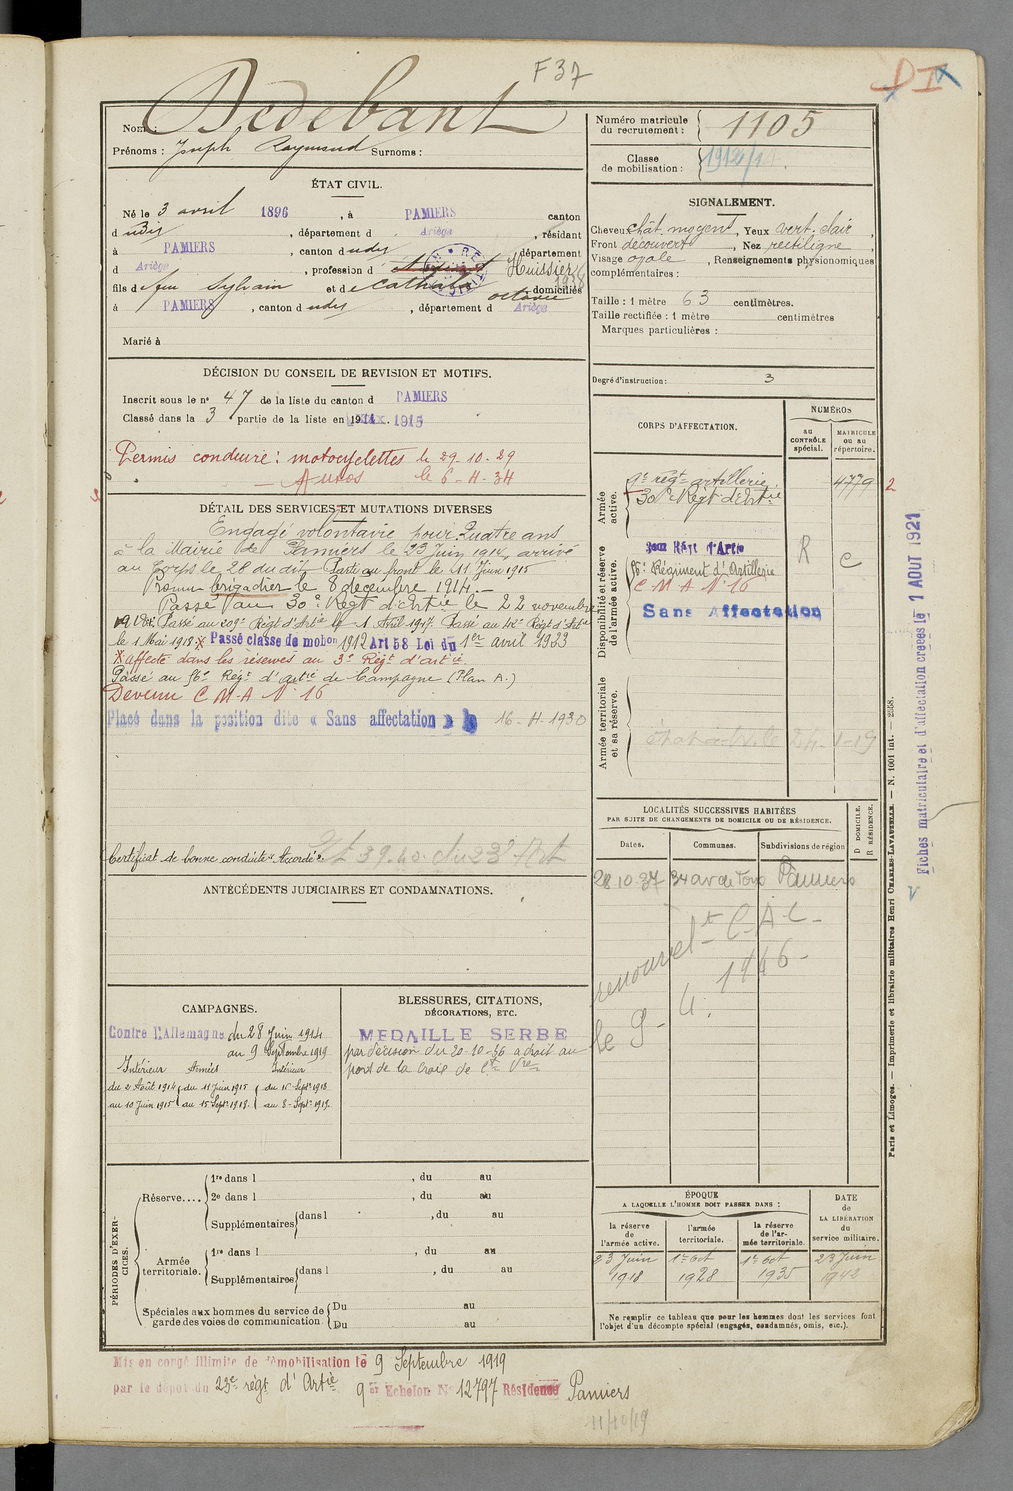 F 37
Nom : Dedebant
Prénoms : Joseph Raymond Surnoms :
Numéro matricule du recrutement : 1105
Classe de mobilisation : 1912
ÉTAT CIVIL.
Né le 3 avril 1896, à PAMIERS canton
d udit, département d Ariège, résidant
à PAMIERS, canton d udit département
d Ariège, profession d Huissier
fils de feu Sylvain et de Cathala Octavie domiciliés
à PAMIERS, canton d udit, département d Ariège
Marié à
SIGNALEMENT.
Cheveux chât. moyent, Yeux vert. clair,
Front découvert, Nez rectiligne
Visage ovale, Renseignements physionomiques
complémentaires :
Taille : 1 mètre 63 centimètres.
Taille rectifiée : 1 mètre centimètres
Marques particulières :
Degré d'instruction : 3
DÉCISION DU CONSEIL DE REVISION ET MOTIFS.
Inscrit sous le n° 47 de la liste du canton d PAMIERS
Classé dans la 3 partie de la liste en 1915
Permis conduire : motocyclettes le 29-10-29
— Autos le 6-4-34
DÉTAIL DES SERVICES ET MUTATIONS DIVERSES
Engagé volontaire pour Quatre ans
à la Mairie de Pamiers le 23 Juin 1914, arrivé
au Corps le 28 du dit Parti au front le 11 Juin 1915
Promu brigadier le 8 décembre 1914. —
Passé au 30e Régt d'Artie le 22 novembre
Passé au 209e Régt d'Artie le 1 Avril 1917. Passé au Régt d'Artie
le 1 Mai 1918 X Passé classe de mobon 1912 Art 58 Loi du 1er avril 1923
X affecté dans les réserves au 3e Régt d'artie
Passé au 56e Régt d'artie de Campagne (Plan A.)
Devenu C M A N° 16
Placé dans la position dite « Sans affectation » 16-4-1930
Certificat de bonne conduite « Accordé ».
CORPS D'AFFECTATION.
NUMÉROS
au CONTRÔLE spécial.
MATRICULE ou au répertoire.
Armée active.
9e régt artillerie. 4779
30e Régt d'Artie
Disponibilité et réserve de l'armée active.
3eme Régt d'Artie
56e Régiment d'Artillerie R C
C M A N° 16
Sans Affectation
Armée territoriale et sa réserve.
ANTÉCÉDENTS JUDICIAIRES ET CONDAMNATIONS.
LOCALITÉS SUCCESSIVES HABITÉES
PAR SUITE DE CHANGEMENTS DE DOMICILE OU DE RÉSIDENCE.
D DOMICILE. R RÉSIDENCE.
Dates. Communes. Subdivisions de région
28.10.37 34 av de Foix Pamiers
renouvelt C.A.C.
le 9-4.1946-
CAMPAGNES.
Contre l'Allemagne du 28 Juin 1914
au 9 Septembre 1919
Intérieur Armées Intérieur
du 2 Août 1914 du 11 Juin 1915 du 15 Septre 1918
au 10 Juin 1915 au 15 Septre 1918. au 8-Septre 1919.
BLESSURES, CITATIONS,
DÉCORATIONS, ETC.
MEDAILLE SERBE
par décision du 20-10-36 a droit au
port de la Croix de Ctt Vre
PÉRIODES D'EXERCICES.
Réserve....
1re dans l , du au
2e dans l , du au
Supplémentaires dans l , du au
Armée territoriale.
1re dans l , du au
Supplémentaires dans l , du au
Spéciales aux hommes du service de garde des voies de communication
Du au
Du au
ÉPOQUE
A LAQUELLE L'HOMME DOIT PASSER DANS :
la réserve de l'armée active.
l'armée territoriale.
la réserve de l'armée territoriale.
DATE de LA LIBÉRATION du service militaire.
23 Juin 1918
1er Oct 1928
1er Oct 1935
23 Juin 1942
Ne remplir ce tableau que pour les hommes dont les services font
l'objet d'un décompte spécial (engagés, condamnés, omis, etc.).
Mis en congé illimité de démobilisation le 9 Septembre 1919
par le dépôt du 23e régt d'Artie 9e Echelon N° 12797 Résidence Pamiers
11/10/19
Paris et Limoges. — Imprimerie et librairie militaires Henri CHARLES-LAVAUZELLE. — N. 1001 int. — 2558.
Fiches matriculaire et d'affectation créées le 1 AOUT 1921